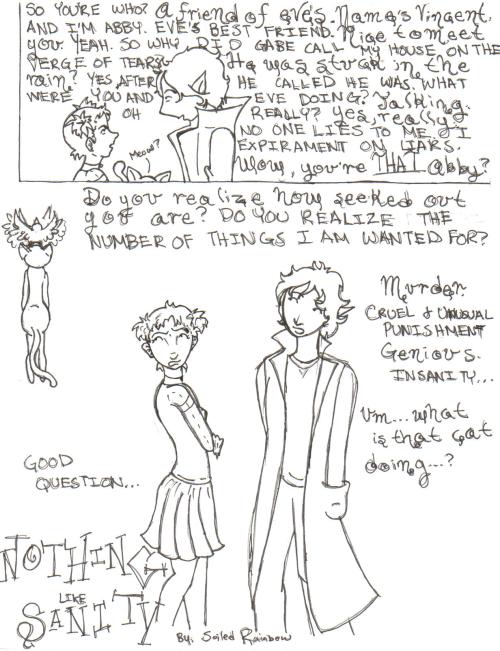 SO YOU'RE WHO? A friend of Eve's. Name's Vincent.
AND I'M ABBY. EVE'S BEST FRIEND. Nice to meet
you. YEAH. SO WHY DID GABE CALL MY HOUSE ON THE
VERGE OF TEARS? He was stuck in the
rain? YES, AFTER HE CALLED HE WAS. WHAT
WERE YOU AND EVE DOING? Talking.
OH REALLY? Yes, really.
NO ONE LIES TO ME. I
EXPIRAMENT ON LIARS.
Wow, you're THAT Abby?
Meow?
Do you realize how seeked out
you are? DO YOU REALIZE THE
NUMBER OF THINGS I AM WANTED FOR?
Murder
CRUEL & UNUSUAL
PUNISHMENT
Genious.
INSANITY...
Um... what
is that cat
doing...?
GOOD
QUESTION...
NOTHING
LIKE
SANITY
By: Soiled Rainbow